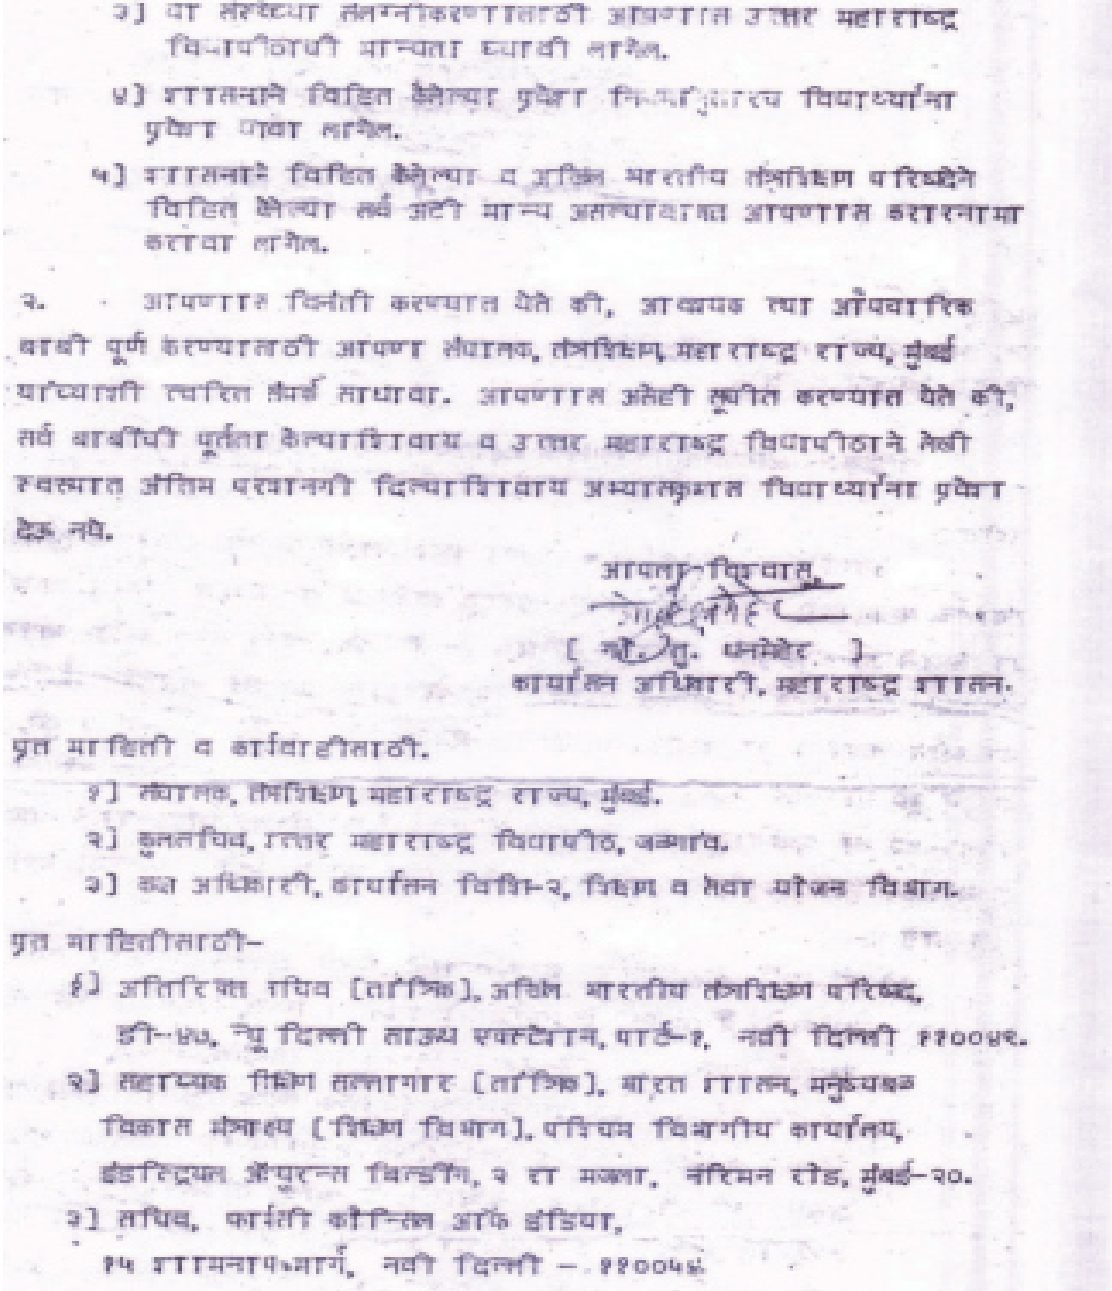 ३] या संस्थेच्या संलग्नीकरणासाठी आपणास उत्तर महाराष्ट्र
विद्यापीठाची मान्यता घ्यावी लागेल.
४] शासनाने विहित केलेल्या प्रवेश नियमानुसारच विद्यार्थ्यांना
प्रवेश द्यावा लागेल.
५] शासनाने विहित केलेल्या व अखिल भारतीय तंत्रशिक्षण परिषदेने
विहित केलेल्या सर्व अटी मान्य असल्याबाबत आपणास करारनामा
करावा लागेल.
२. आपणास विनंती करण्यात येते की, आवश्यक त्या औपचारिक
बाबी पूर्ण करण्यासाठी आपण संचालक, तंत्रशिक्षण, महाराष्ट्र राज्य, मुंबई
यांच्याशी त्वरित संपर्क साधावा. आपणास असेही सूचीत करण्यात येते की,
सर्व बाबींची पूर्तता केल्याशिवाय व उत्तर महाराष्ट्र विद्यापीठाने लेखी
स्वरुपात अंतिम परवानगी दिल्याशिवाय अभ्यासक्रमास विद्यार्थ्यांना प्रवेश
देऊ नये.
आपला विश्वासू,
[ गो. तु. धनमेहेर ]
कार्यासन अधिकारी, महाराष्ट्र शासन.
प्रत माहिती व कार्यवाहीसाठी.
१] संचालक, तंत्रशिक्षण, महाराष्ट्र राज्य, मुंबई.
२] कुलसचिव, उत्तर महाराष्ट्र विद्यापीठ, जळगांव.
३] कक्ष अधिकारी, कार्यासन विशि-२, शिक्षण व सेवा योजन विभाग.
प्रत माहितीसाठी-
१] अतिरिक्त सचिव [तांत्रिक], अखिल भारतीय तंत्रशिक्षण परिषद,
डी-४७, न्यू दिल्ली साऊथ एक्स्टेशन, पार्ट-१, नवी दिल्ली ११००४९.
२] सहाय्यक शिक्षण सल्लागार [तांत्रिक], भारत शासन, मनुष्यबळ
विकास मंत्रालय [शिक्षण विभाग], पश्चिम विभागीय कार्यालय,
इंडस्ट्रियल अॅश्युरन्स बिल्डींग, २ रा मजला, नरिमन रोड, मुंबई-२०.
३] सचिव, फार्मसी कौन्सिल ऑफ इंडिया,
नवी दिल्ली -